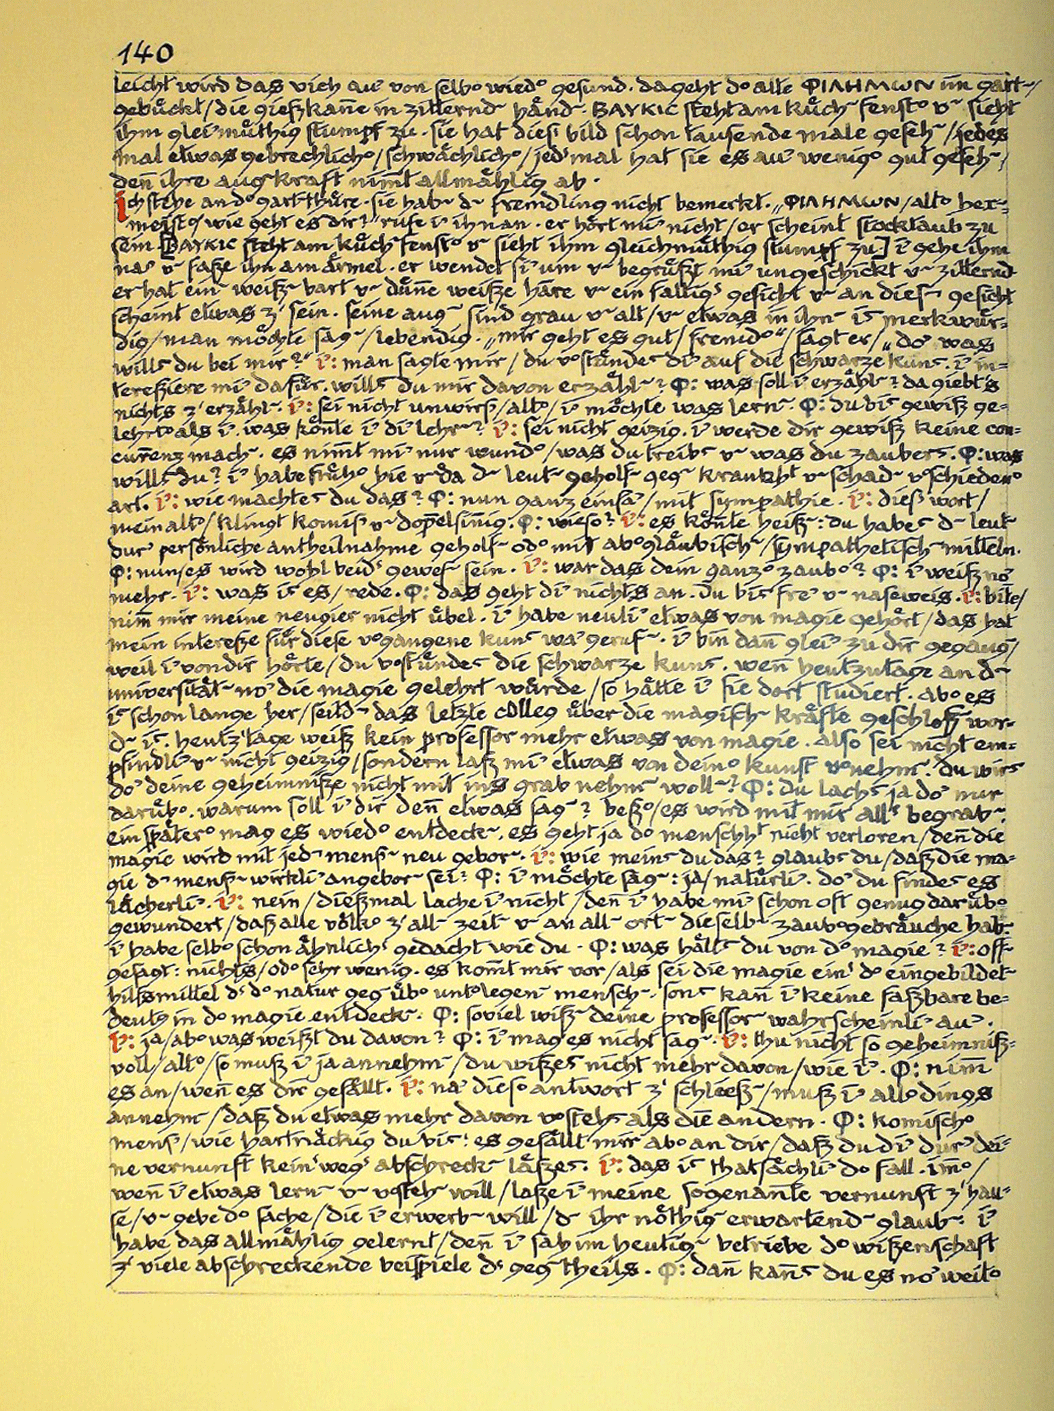 140
leicht wird das vieh au' von selb° wied° gesund. da geht d° alte ΦΙΛΗΜΩΝ im gart~/
gebückt/die gießkañe in zitternd~ händ~. ΒΑΥΚΙC steht am küch~fenst° v~ sieht
ihm glei'müthig stumpf zu. sie hat dies' bild schon tausende male geseh~/jedes
mal etwas gebrechlich°/schwächlich°/jed'mal hat sie es au' wenig° gut geseh~/
deñ ihre aug~kraft nim̃t allmählig ab.
ich stehe an d° gart~thüre. sie hab~ d~ fremdling nicht bemerkt. „ΦΙΛΗΜΩΝ/alt° hex~-
meist°/wie geht es dir?" rufe i' ihn an. er hört mi' nicht/er scheint stocktaub zu
sein. [ΒΑΥΚΙC steht am küch~fenst° v~ sieht ihm gleichmüthig stumpf zu] i' gehe ihm
na' v~ faße ihn am ärmel. er wendet si' um v~ begrüßt mi' ungeschickt v~ zitternd.
er hat ein~ weiß~ bart v~ düñe weiße häre v~ ein faltig' gesicht v~ an dies~ gesicht
scheint etwas z' sein. seine aug~ sind grau v~ alt/v~ etwas in ihn~ is' merkwür-
dig/man möchte sag~/lebendig. „mir geht es gut/fremd°"/sagt er/„do' was
wills' du bei mir?" i': man sagte mir/du v°stündes' di' auf die schwarze kuns'. i' in-
tereßiere mi' dafür. wills' du mir davon erzähl~? Φ: was soll i' erzähl~? da giebt's
nichts z' erzähl~. i': sei nicht unwirs'/alt°/i' möchte was lern~. Φ: du bis' gewiß ge-
lehrt° als i'. was köñte i' di' lehr~? i': sei nicht geizig. i' werde dir gewiß keine con-
cureñz mach~. es nim̃t mi' nur wund°/was du treibs' v~ was du zaubers'. Φ: was
wills' du? i' habe früh° hie v~ da d~ leut~ geholf~ geg~ krankht v~ schad~ v°schieden°
art. i': wie machtes' du das? Φ: nun ganz einfa'/mit sympathie. i': dieß wort/
mein alt°/klingt komis' v~ dop̃elsiñig. Φ: wieso? i': es köñte heiß~: du habes' d~ leut~
dur' persönliche antheilnahme geholf~ od° mit ab°gläubisch~/sympathetisch~ mitteln.
Φ: nun/es wird wohl beid' gewes~ sein. i': war das dein ganz° zaub°? Φ: i' weiß no'
mehr. i': was is' es/rede. Φ: das geht di' nichts an. du bis' fre' v~ naseweis. i': bitte/
nim̃ mir meine neugier nicht übel. i' habe neuli' etwas von magie gehört/das hat
mein intereße für diese v°gangene kuns' wa' geruf~. i' bin dañ glei' zu dir gegang~/
weil i' von dir hörte/du v°stündes' die schwarze kuns'. weñ heutzutage an d~
universität~ no' die magie gelehrt würde/so hätte i' sie dort studiert. ab° es
is' schon lange her/seitd~ das letzte colleg über die magisch~ kräfte geschloß~ wor-
d~ is'. heutz'tage weiß kein professor mehr etwas von magie. also sei nicht em-
pfindli' v~ nicht geizig/sondern laß mi' etwas von dein° kunst v°nehm~. du wirs'
do' deine geheimniße nicht mit ins grab nehm~ woll~? Φ: du lachs' ja do' nur
darüb°. warum soll i' dir deñ etwas sag~? beß°/es wird mit mir all' begrab~.
ein später° mag es wied° entdeck~. es geht ja d° menschht nicht verloren/deñ die
magie wird mit jed~ mens'~ neu gebor~. i': wie meins' du das? glaubs' du/daß die ma-
gie d~ mens'~ wirkli' angebor~ sei? Φ: i' möchte sag~: ja/natürli'. do' du findes' es
lächerli'. i': nein/dießmal lache i' nicht/deñ i' habe mi' schon oft genug darüb°
gewundert/daß alle völk° z' all~ zeit~ v~ an all~ ort~ dieselb~ zaub°gebräuche hab~.
i' habe selb° schon ähnlich' gedacht wie du. Φ: was hälts' du von d° magie? i': off~
gesagt: nichts/od° sehr wenig. es kom̃t mir vor/als sei die magie ein' d° eingebildet~
hilfsmittel d' d° natur geg~üb° unt°legen~ mensch~. sons' kañ i' keine faßbare be-
deutg in d° magie entdeck~. Φ: soviel wiß~ deine professor~ wahrscheinli' au'.
i': ja/ab° was weißt du davon? Φ: i' mag es nicht sag~. i': thu nicht so geheimniß-
voll/alt°/so muß i' ja annehm~/du wißes' nicht mehr davon/wie i'. Φ: nim̃
es an/weñ es dir gefällt. i': na' dies° antwort z' schließ~/muß i' all°dings
annehm~/daß du etwas mehr davon v°stehs' als die andern. Φ: komisch°
mens'/wie hartnäckig du bis'! es gefällt mir ab° an dir/daß du di' dur' dei-
ne vernunft kein'weg' abschreck~ läßes'. i': das is' thatsächli' d° fall. im̃°/
weñ i' etwas lern~ v~ v°steh~ will/laße i' meine sogenañte vernunft z' hau-
se/v~ gebe d° sache/die i' erwerb~ will/d~ ihr nöthig~ erwartend~ glaub~. i'
habe das allmählig gelernt/deñ i' sah im heutig~ betriebe d° wißenschaft
z' viele abschreckende beispiele d' geg~theils. Φ: dañ kañs' du es no' weit°